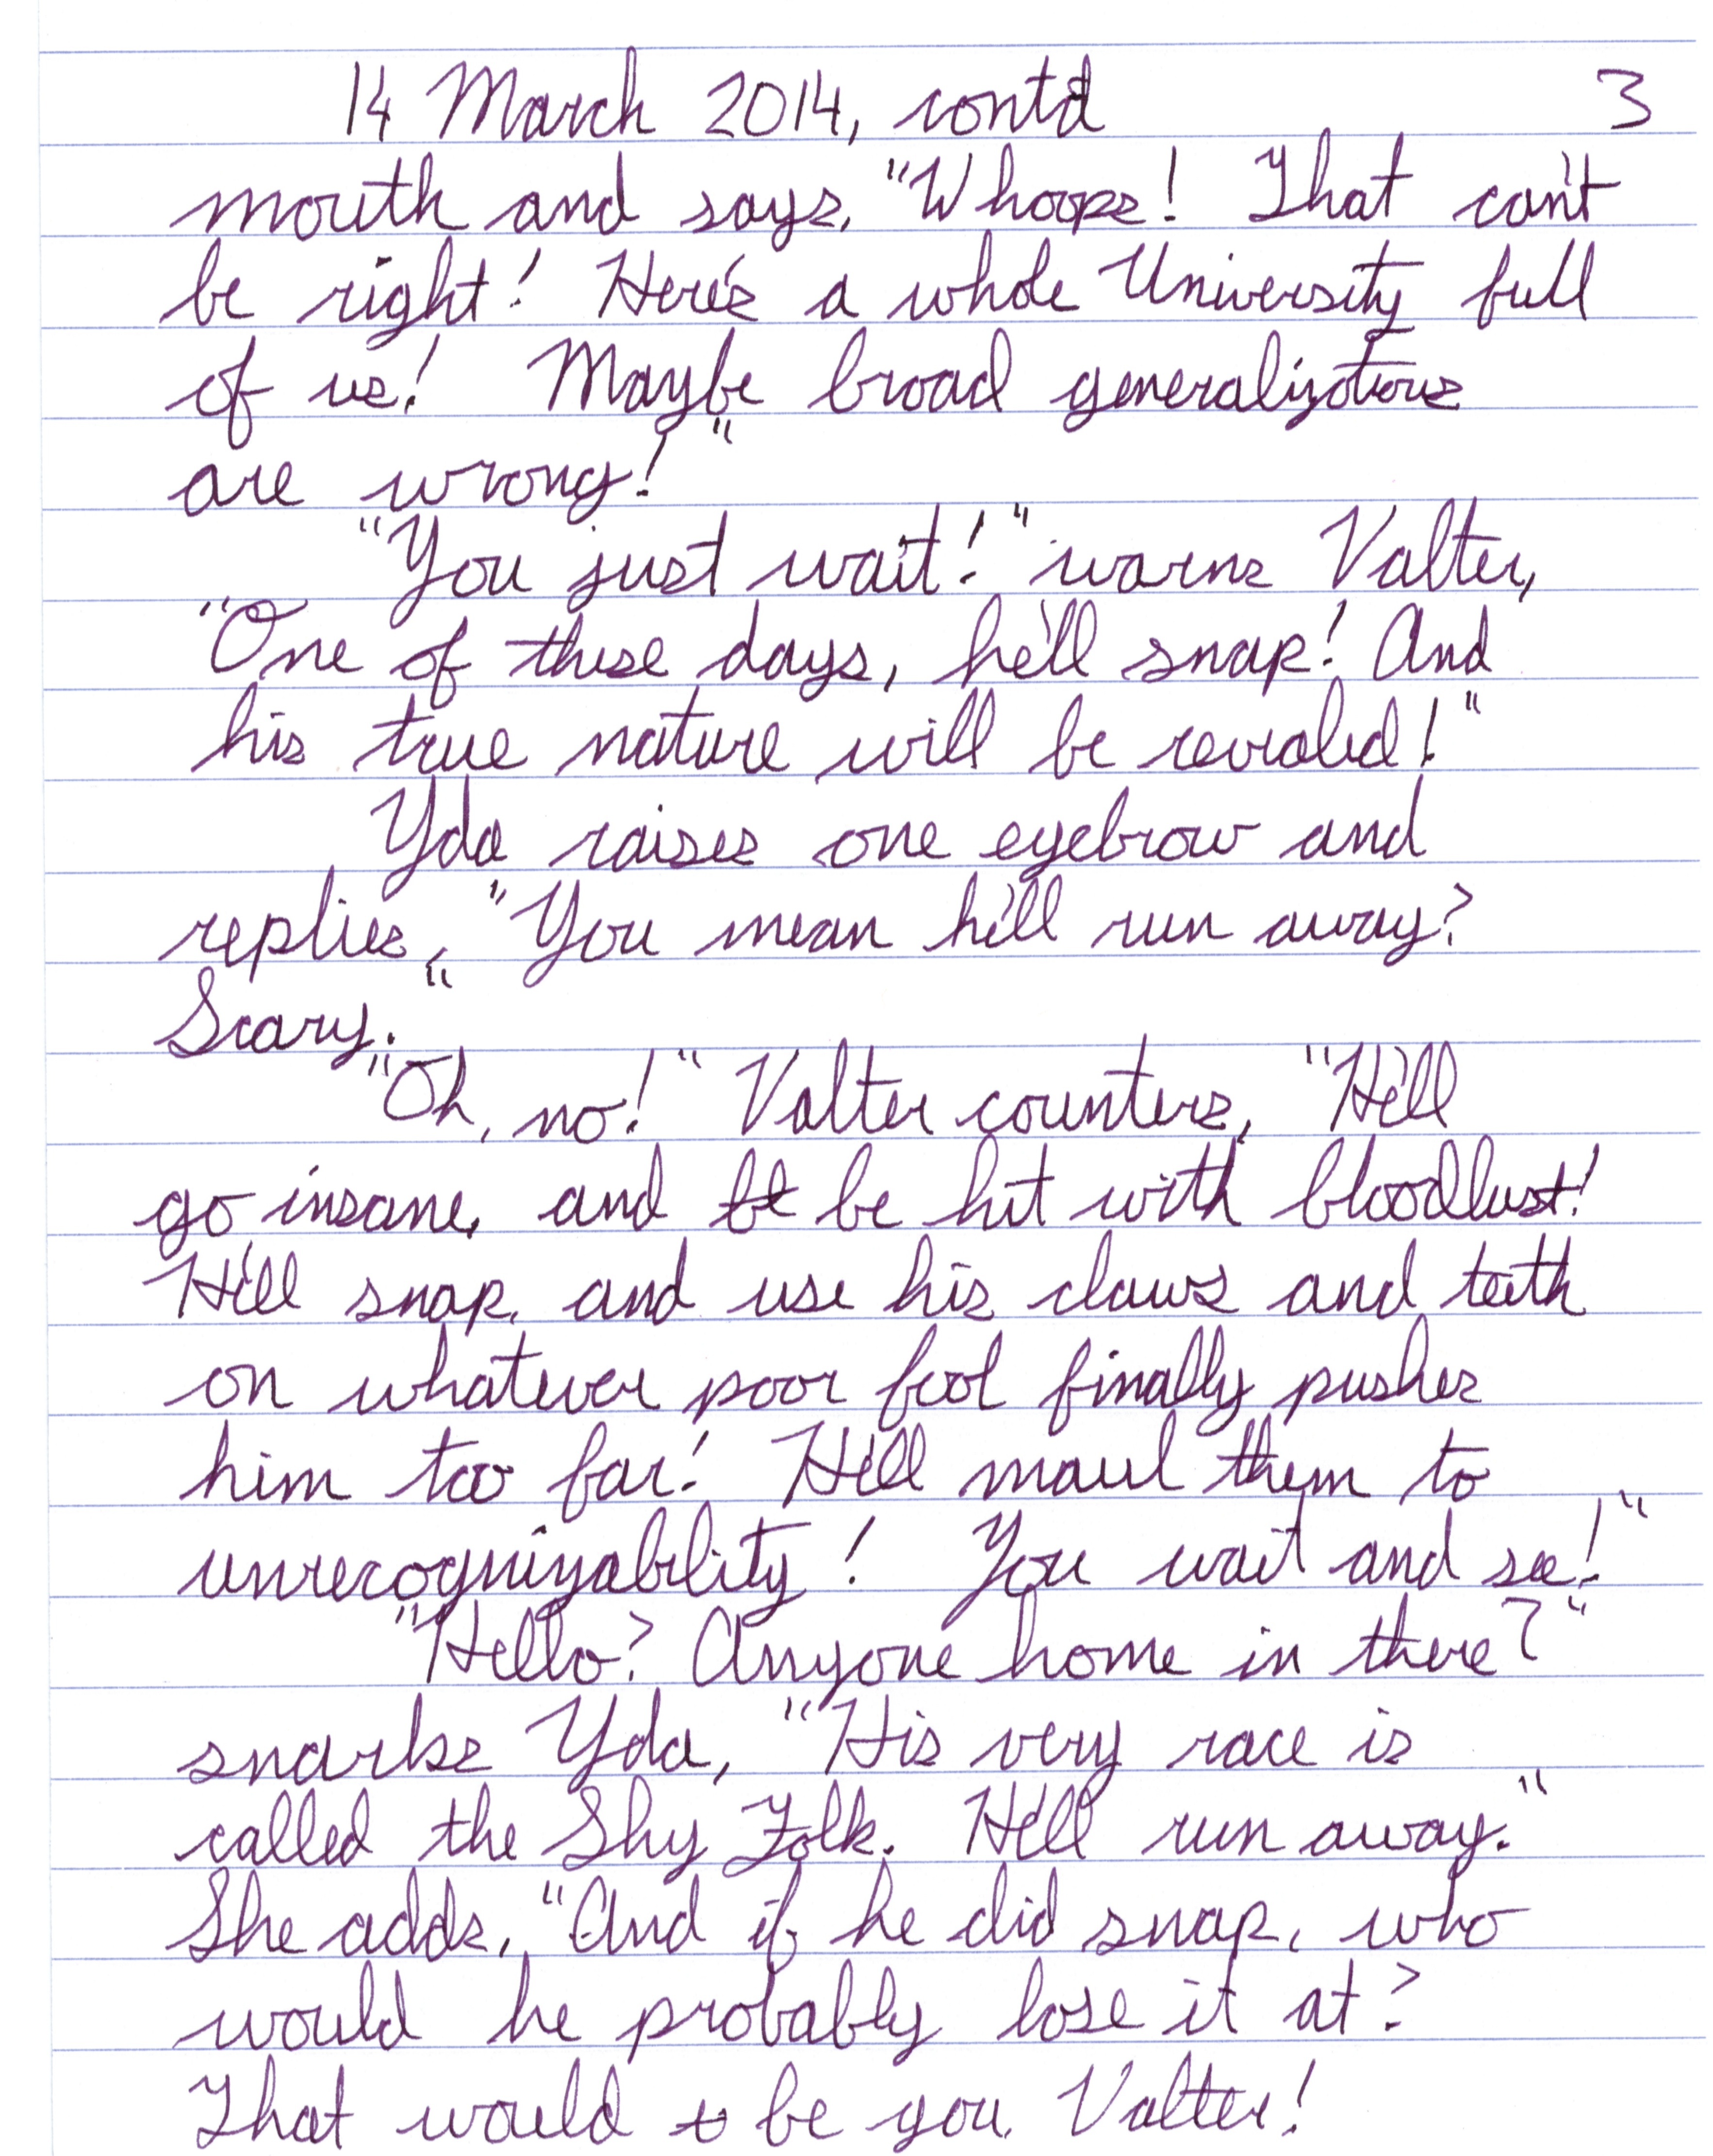 14 March 2014, cont'd 3
mouth and says, "Whoops! That can't
be right! Here's a whole University full
of us! Maybe broad generalizations
are wrong!"
"You just wait!" warns Valter,
"One of these days, he'll snap! And
his true nature will be revealed!"
Yda raises one eyebrow and
replies, "You mean he'll run away?
Scary."
"Oh, no!" Valter counters, "He'll
go insane, and be be hit with bloodlust!
He'll snap, and use his claws and teeth
on whatever poor fool finally pushes
him too far! He'll maul them to
unrecognizability! You wait and see!"
"Hello? Anyone home in there?"
snarks Yda, "His very race is
called the Shy Folk. He'll run away."
She adds, "And if he did snap, who
would he probably lose it at?
That would be you, Valter!